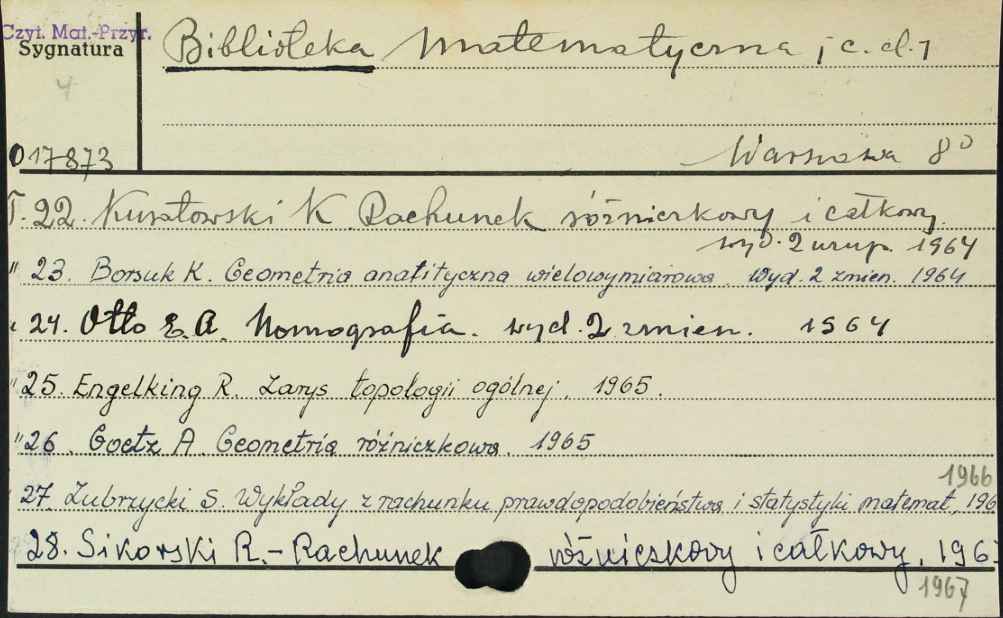 Czyt. Mat.-Przyr.
Sygnatura
Biblioteka Matematyczna ; c. d.
4
017873
Warszawa 8°
T. 22. Kuratowski K Rachunek różniczkowy i całkowy.
wyd. 2 uzup. 1964
" 23. Borsuk K. Geometria analityczna wielowymiarowa. Wyd. 2 zmien. 1964
" 24. Otto E. A. Nomografia. wyd. 2 zmien. 1964
" 25. Engelking R. Zarys topologii ogólnej. 1965.
" 26. Goetz A. Geometria różniczkowa. 1965
1966
" 27. Zubrzycki S. Wykłady z rachunku prawdopodobieństwa i statystyki matemat. 196
28. Sikorski R. - Rachunek różniczkowy i całkowy, 196
1967